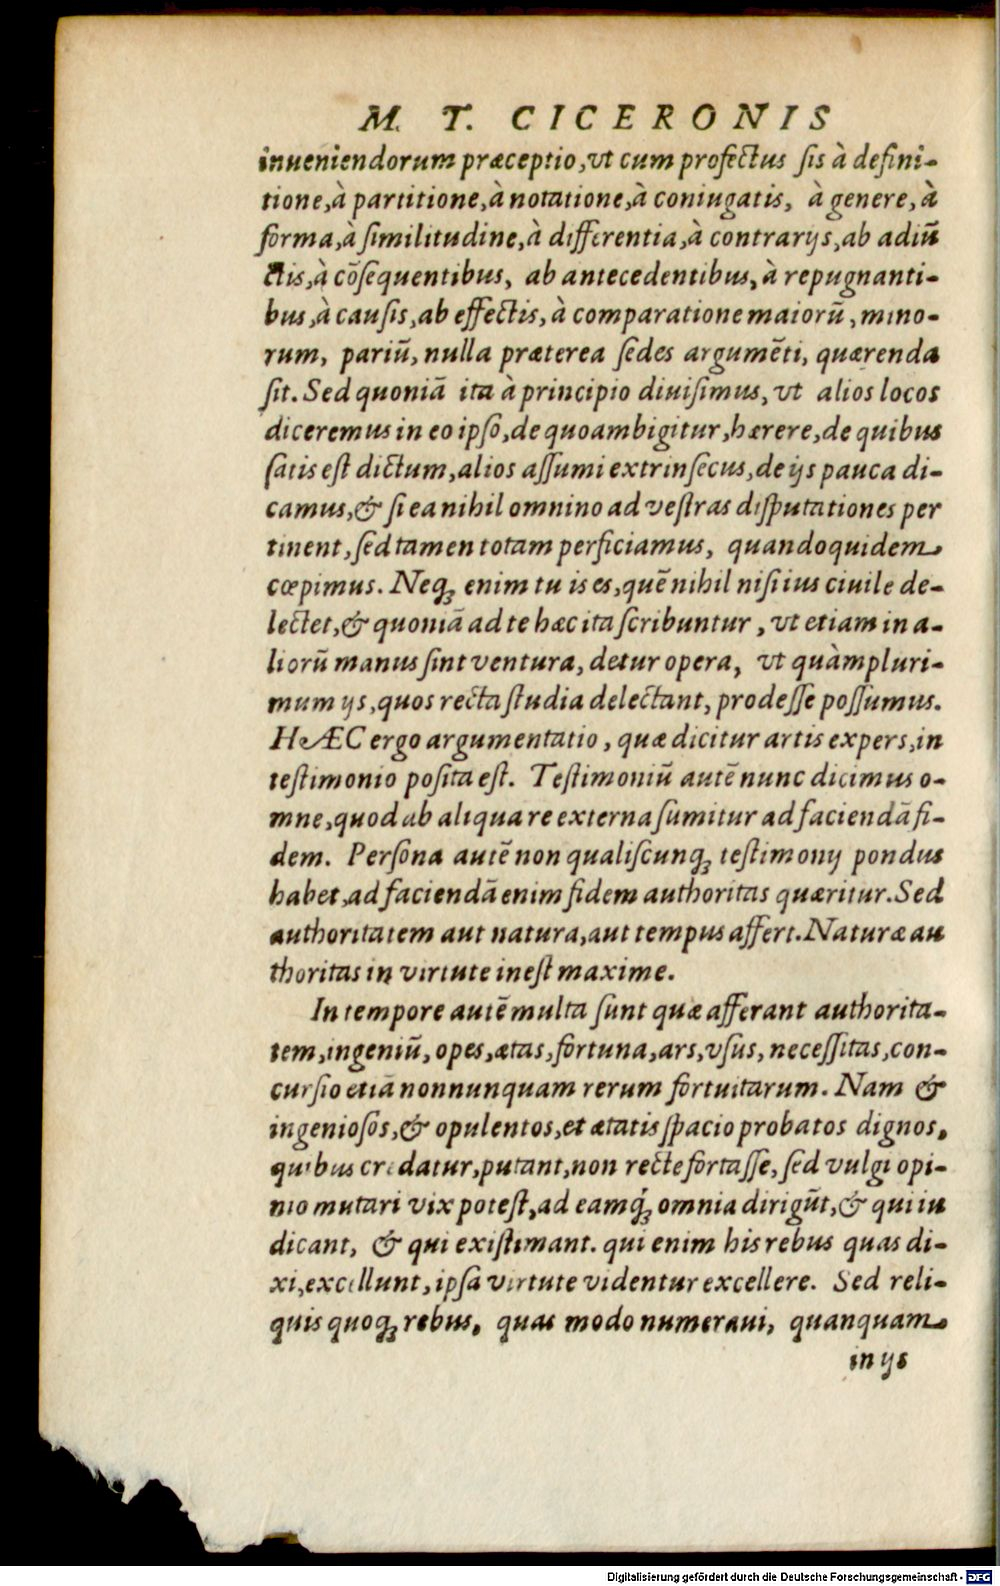 M. T. CICERONIS
inueniendorum præceptio, vt cum profectus sis à defini-
tione, à partitione, à notatione, à coniugatis, à genere, à
forma, à similitudine, à differentia, à contrarijs, ab adiū
ctis, à cōsequentibus, ab antecedentibus, à repugnanti-
bus, à causis, ab effectis, à comparatione maiorū, mino-
rum, pariū, nulla præterea sedes argumēti, quærenda
sit. Sed quoniā ita à principio diuisimus, vt alios locos
diceremus in eo ipso, de quo ambigitur, hærere, de quibus
satis est dictum, alios assumi extrinsecus, de ijs pauca di-
camus, & si ea nihil omnino ad vestras disputationes per
tinent, sed tamen totam perficiamus, quandoquidem
cœpimus. Neq; enim tu is es, quē nihil nisi ius ciuile de-
lectet, & quoniā ad te hæc ita scribuntur, vt etiam in a-
liorū manus sint ventura, detur opera, vt quàmpluri-
mum ijs, quos recta studia delectant, prodesse possumus.
HÆC ergo argumentatio, quæ dicitur artis expers, in
testimonio posita est. Testimoniū autē nunc dicimus o-
mne, quod ab aliqua re externa sumitur ad faciendā fi-
dem. Persona autē non qualiscunq; testimonij pondus
habet, ad faciendā enim fidem authoritas quæritur. Sed
authoritatem aut natura, aut tempus affert. Naturæ au
thoritas in virtute inest maxime.
In tempore autē multa sunt quæ afferant authorita-
tem, ingeniū, opes, ætas, fortuna, ars, vsus, necessitas, con-
cursio etiā nonnunquam rerum fortuitarum. Nam &
ingeniosos, & opulentos, et ætatis spacio probatos dignos,
quibus credatur, putant, non recte fortasse, sed vulgi opi-
nio mutari vix potest, ad eamq́; omnia dirigūt, & qui iu
dicant, & qui existimant. qui enim his rebus quas di-
xi, excellunt, ipsa virtute videntur excellere. Sed reli-
quis quoq; rebus, quas modo numeraui, quanquam
in ijs
Digitalisierung gefördert durch die Deutsche Forschungsgemeinschaft - DFG